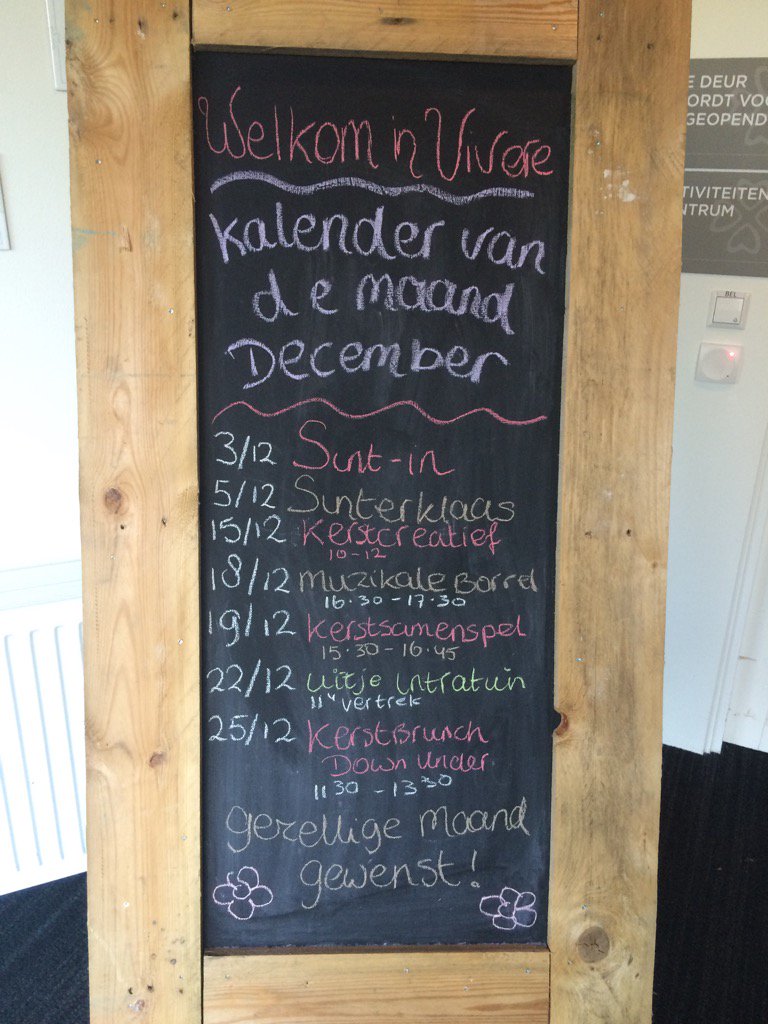 Welkom in Vivere
Kalender van
de maand
December
3/12 Sint-in
5/12 Sinterklaas
15/12 Kerstcreatief
10-12
18/12 Muzikale Borrel
16.30-17.30
19/12 Kerstsamenspel
15.30-16.45
22/12 uitje Intratuin
11u vertrek
25/12 KerstBrunch
Down Under
11 30 - 13 30
gezellige Maand
gewenst!
E DEUR
ORDT VOO
GEOPEND
TIVITEITEN
NTRUM
BEL